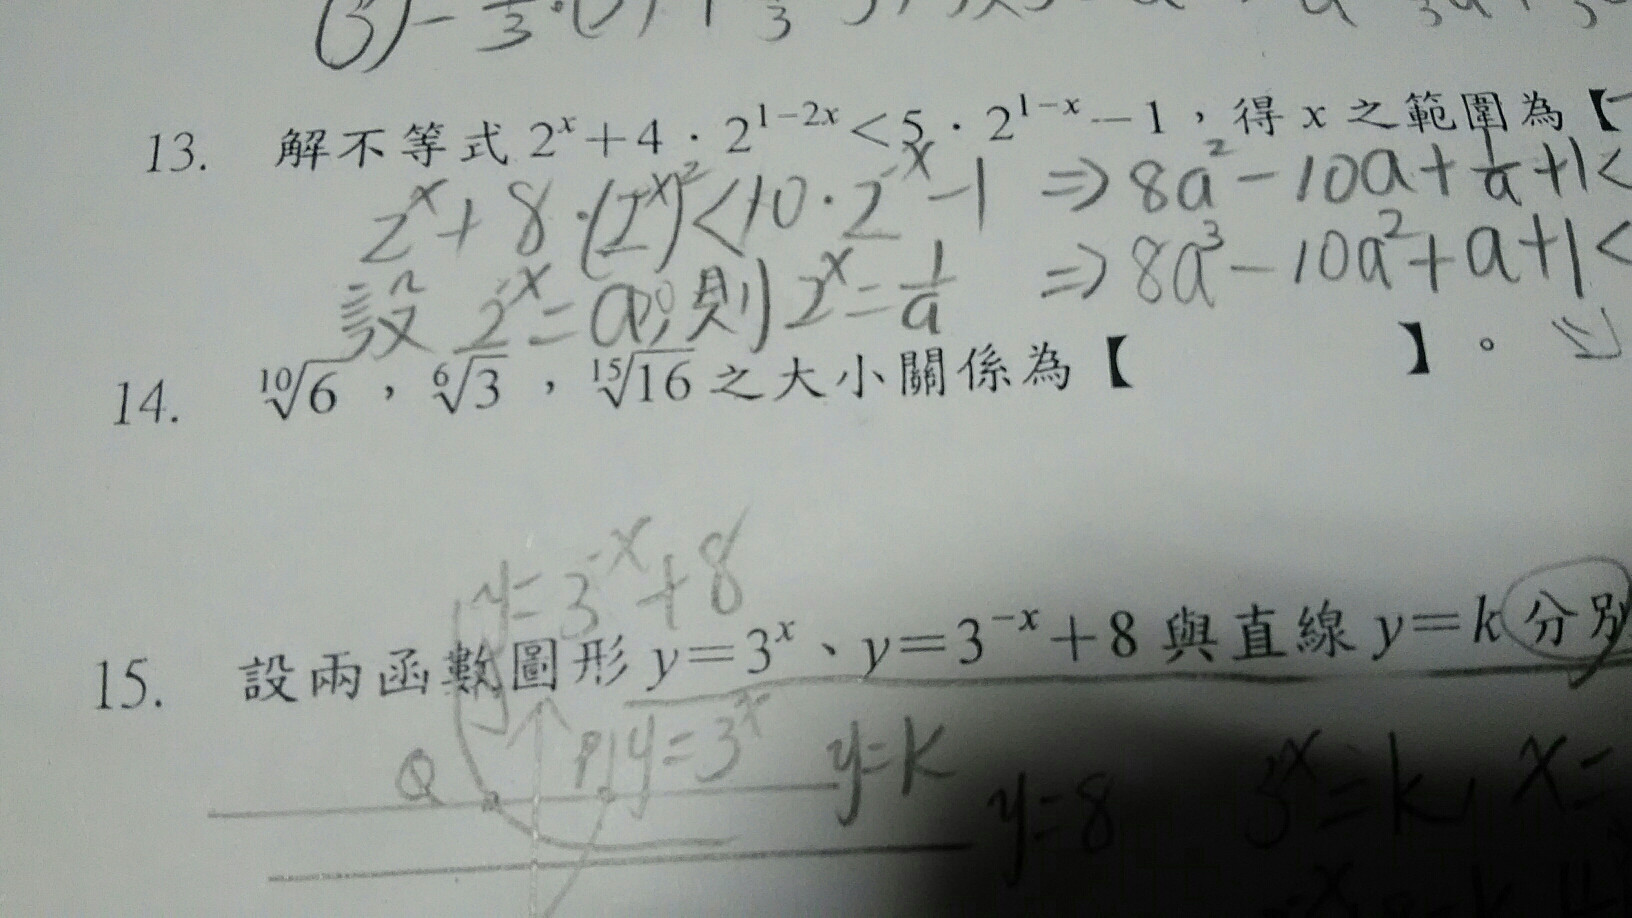 13. 解不等式 2^x+4・2^{1-2x}<5・2^{1-x}-1，得 x 之範圍為【
2^x+8・(2^{-x})^2<10・2^{-x}-1 ⇒ 8a^2-10a+1/a+1<
設 2^{-x}=a，則 2^x=1/a ⇒ 8a^3-10a^2+a+1<
14. ¹⁰√6，⁶√3，¹⁵√16 之大小關係為【 】。
y=3^{-x}+8
15. 設兩函數圖形 y=3^x、y=3^{-x}+8 與直線 y=k 分別
Q P y=3^x y=k
y=8 3^x=k, x=